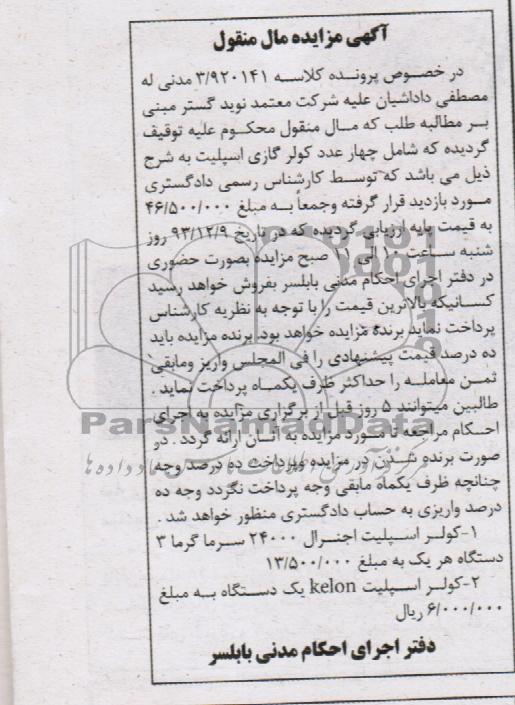 آگهی مزایده مال منقول
در خصوص پرونده کلاسه ۳/۹۲۰۱۴۱ مدنی له
مصطفی داداشیان علیه شرکت معتمد نوید گستر مبنی
بر مطالبه طلب که مال منقول محکوم علیه توقیف
گردیده که شامل چهار عدد کولر گازی اسپلیت به شرح
ذیل می باشد که توسط کارشناس رسمی دادگستری
مورد بازدید قرار گرفته وجمعاً به مبلغ ۴۶/۵۰۰/۰۰۰
به قیمت پایه ارزیابی گردیده که در تاریخ ۹۳/۱۲/۹ روز
شنبه ساعت ۱۰ الی ۱۱ صبح مزایده بصورت حضوری
در دفتر اجرای احکام مدنی بابلسر بفروش خواهد رسید
کسانیکه بالاترین قیمت را با توجه به نظریه کارشناس
پرداخت نماید برنده مزایده خواهد بود. برنده مزایده باید
ده درصد قیمت پیشنهادی را فی المجلس واریز ومابقی
ثمن معامله را حداکثر ظرف یکماه پرداخت نماید .
طالبین میتوانند ۵ روز قبل از برگزاری مزایده به اجرای
احکام مراجعه تا مورد مزایده به آنان ارائه گردد . در
صورت برنده شدن در مزایده وپرداخت ده درصد وجه
چنانچه ظرف یکماه مابقی وجه پرداخت نگردد وجه ده
درصد واریزی به حساب دادگستری منظور خواهد شد .
۱-کولر اسپلیت اجنرال ۲۴۰۰۰ سرما گرما ۳
دستگاه هر یک به مبلغ ۱۳/۵۰۰/۰۰۰
۲-کولر اسپلیت kelon یک دستگاه به مبلغ
۶/۰۰۰/۰۰۰ ریال
دفتر اجرای احکام مدنی بابلسر
ParsNamadData